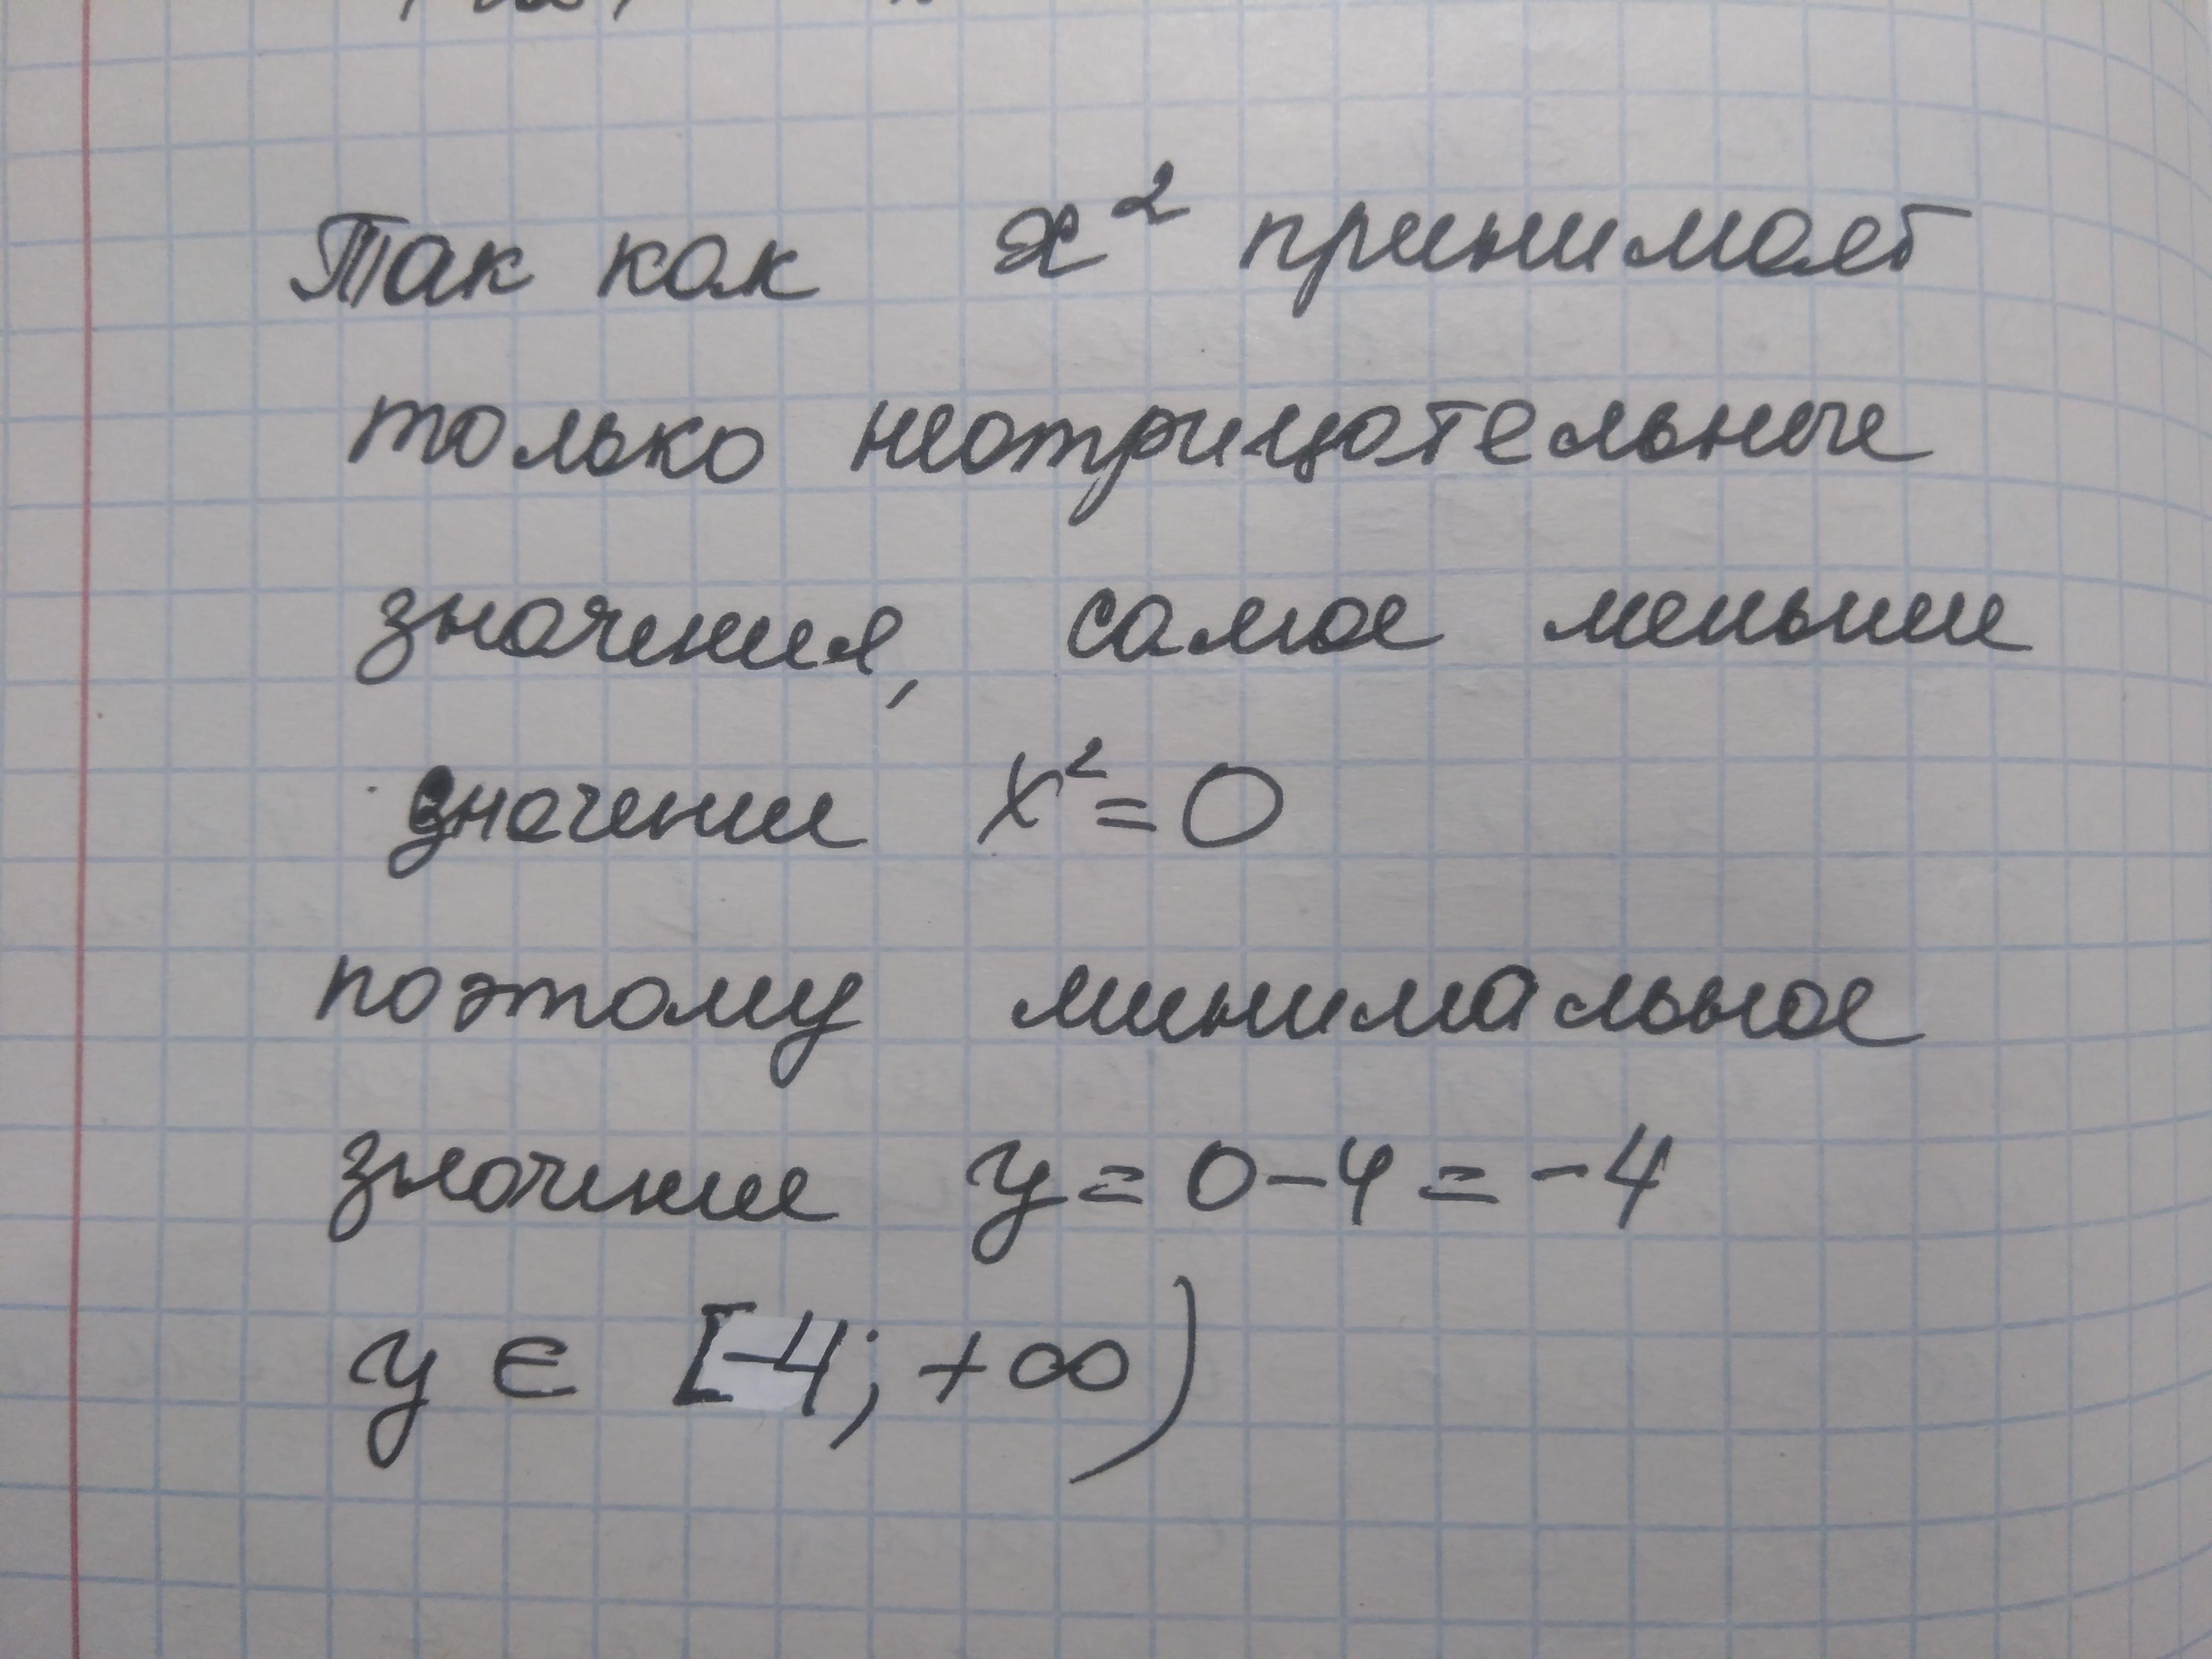 Так как x² принимает
только неотрицательные
значения, самое меньшее
значение x² = 0
поэтому минимальное
значение y = 0 - 4 = -4
y ∈ [-4; +∞)